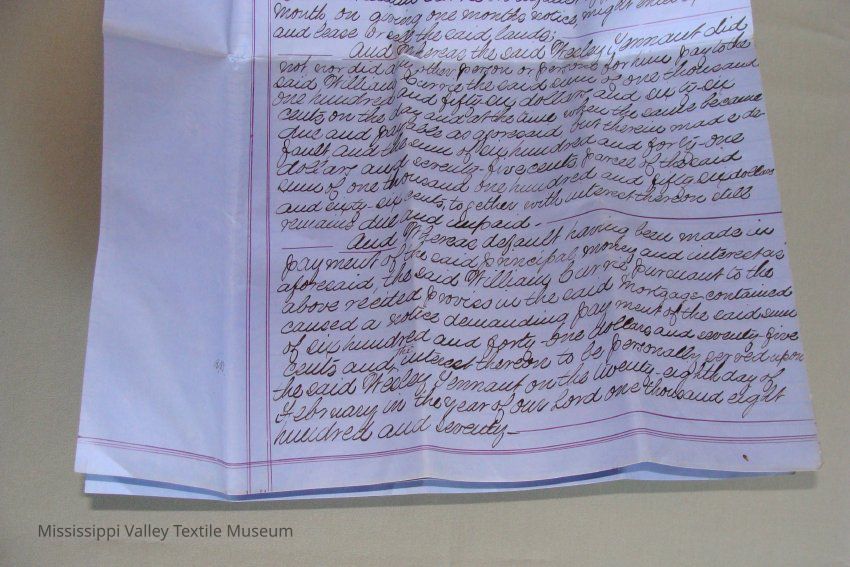 month on giving one months notice, might enter
and lease or sell the said lands;
And Whereas the said Wesley Tennant did
not nor did any other person or persons for him pay to the
said William Currie the said sum of one thousand
one hundred and fifty six dollars and sixty-six
cents on the day and at the time when the same became
due and payable as aforesaid but therein made de-
fault and the sum of six hundred and forty-one
dollars and seventy-five cents parcel of the said
sum of one thousand one hundred and fifty six dollars
and sixty-six cents, together with interest thereon still
remains due and unpaid.
And Whereas default having been made in
payment of the said principal money and interest as
aforesaid, the said William Currie, pursuant to the
above recited Proviso in the said Mortgage contained
caused a notice demanding payment of the said sum
of six hundred and forty-one dollars and seventy-five
cents and the interest thereon to be personally served upon
the said Wesley Tennant on the twenty-eighth day of
February in the year of our Lord one thousand eight
hundred and seventy—
Mississippi Valley Textile Museum